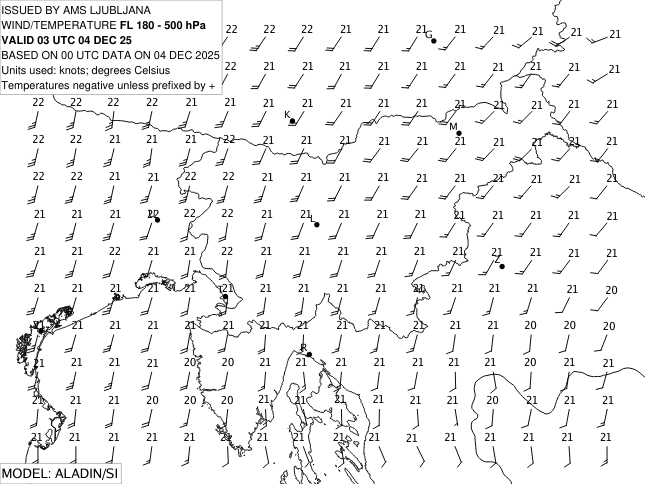 ISSUED BY AMS LJUBLJANA
WIND/TEMPERATURE FL 180 - 500 hPa
VALID 03 UTC 04 DEC 25
BASED ON 00 UTC DATA ON 04 DEC 2025
Units used: knots; degrees Celsius
Temperatures negative unless prefixed by +
22 22 21 21 21 21 21 21 21 21 21
G
22 22 21 21 21 21 21 21 21 21 21
22 22 22 22 21 21 21 21 21 21 21 21 21 21 21 21
K
M
22 22 21 21 21 22 21 21 21 21 21 21 21 21 21 21
22 22 21 21 21 22 22 21 21 21 21 21 21 21 21 21
21 21 21 22 22 22 21 21 21 21 21 21 21 21 21 21
L
21 21 22 21 21 22 21 21 21 21 21 21 21 21 21 21
Z
21 21 21 21 21 21 21 21 21 21 21 21 21 21 21 20
21 21 21 21 21 21 21 21 21 21 21 21 21 20 20 20
R
21 21 21 21 20 20 21 21 21 21 21 21 21 20 21 21
21 21 21 20 20 20 21 21 21 21 21 21 20 21 21 21
21 21 21 21 21 21 21 21 21 21 21 21 21 21 21 21
MODEL: ALADIN/SI